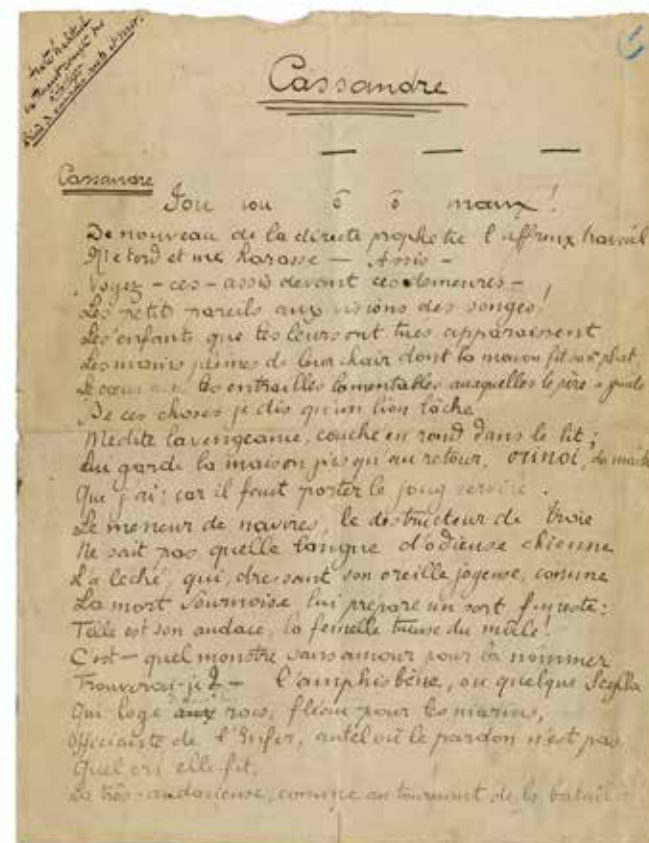 Cassandre
Cassandre
Iou iou ô ô maux !
De nouveau de la directe prophétie l'affreux travail
Me tord et me harasse — Assis —
Voyez - ces - assis devant ces demeures -
Les petits pareils aux visions des songes !
Les enfants que les leurs ont tués apparaissent
Les mains pleines de leur chair dont la maison fit son plat
Le cœur les entrailles lamentables auxquelles le père a goûté
De ces choses je dis qu'un lion lâche
Médite la vengeance, couché en rond dans le lit ;
Lui garde la maison jusqu'au retour, oimoi, du maître
Que j'ai : car il faut porter le joug servile.
Le meneur de navires, le destructeur de Troie
Ne sait pas quelle langue d'odieuse chienne
L'a léché, qui, dressant son oreille joyeuse, comme
La mort sournoise lui prépare un sort funeste :
Telle est son audace, la femelle tueuse du mâle !
C'est — quel monstre sans amour pour la nommer
Trouverai-je ? — l'amphisbène, ou quelque Scylla
Qui loge aux rocs, fléau pour les marins,
Officiante de l'Enfer, autel où le pardon n'est pas
Quel cri elle fit,
La très-audacieuse, comme au tournant de la bataille